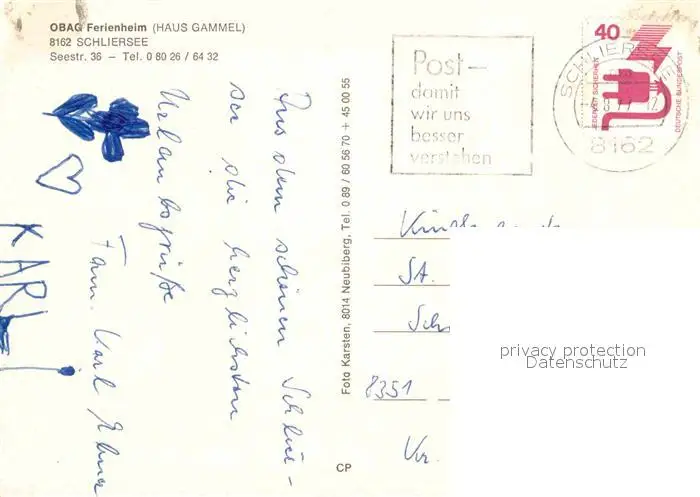 OBAG Ferienheim (HAUS GAMMEL)
8162 SCHLIERSEE
Seestr. 36 – Tel. 0 80 26 / 64 32
Aus dem schönen Schlier-
see die herzlichsten
Urlaubsgrüße
Fam. Karl
KARL!
Foto Karsten, 8014 Neubiberg, Tel. 0 89 / 60 56 70 + 45 00 55
CP
Post–
damit
wir uns
besser
verstehen
SCHLIERSEE
8162
40
JEDERZEIT SICHERHEIT
DEUTSCHE BUNDESPOST
SA.
Sch
8351
privacy protection
Datenschutz